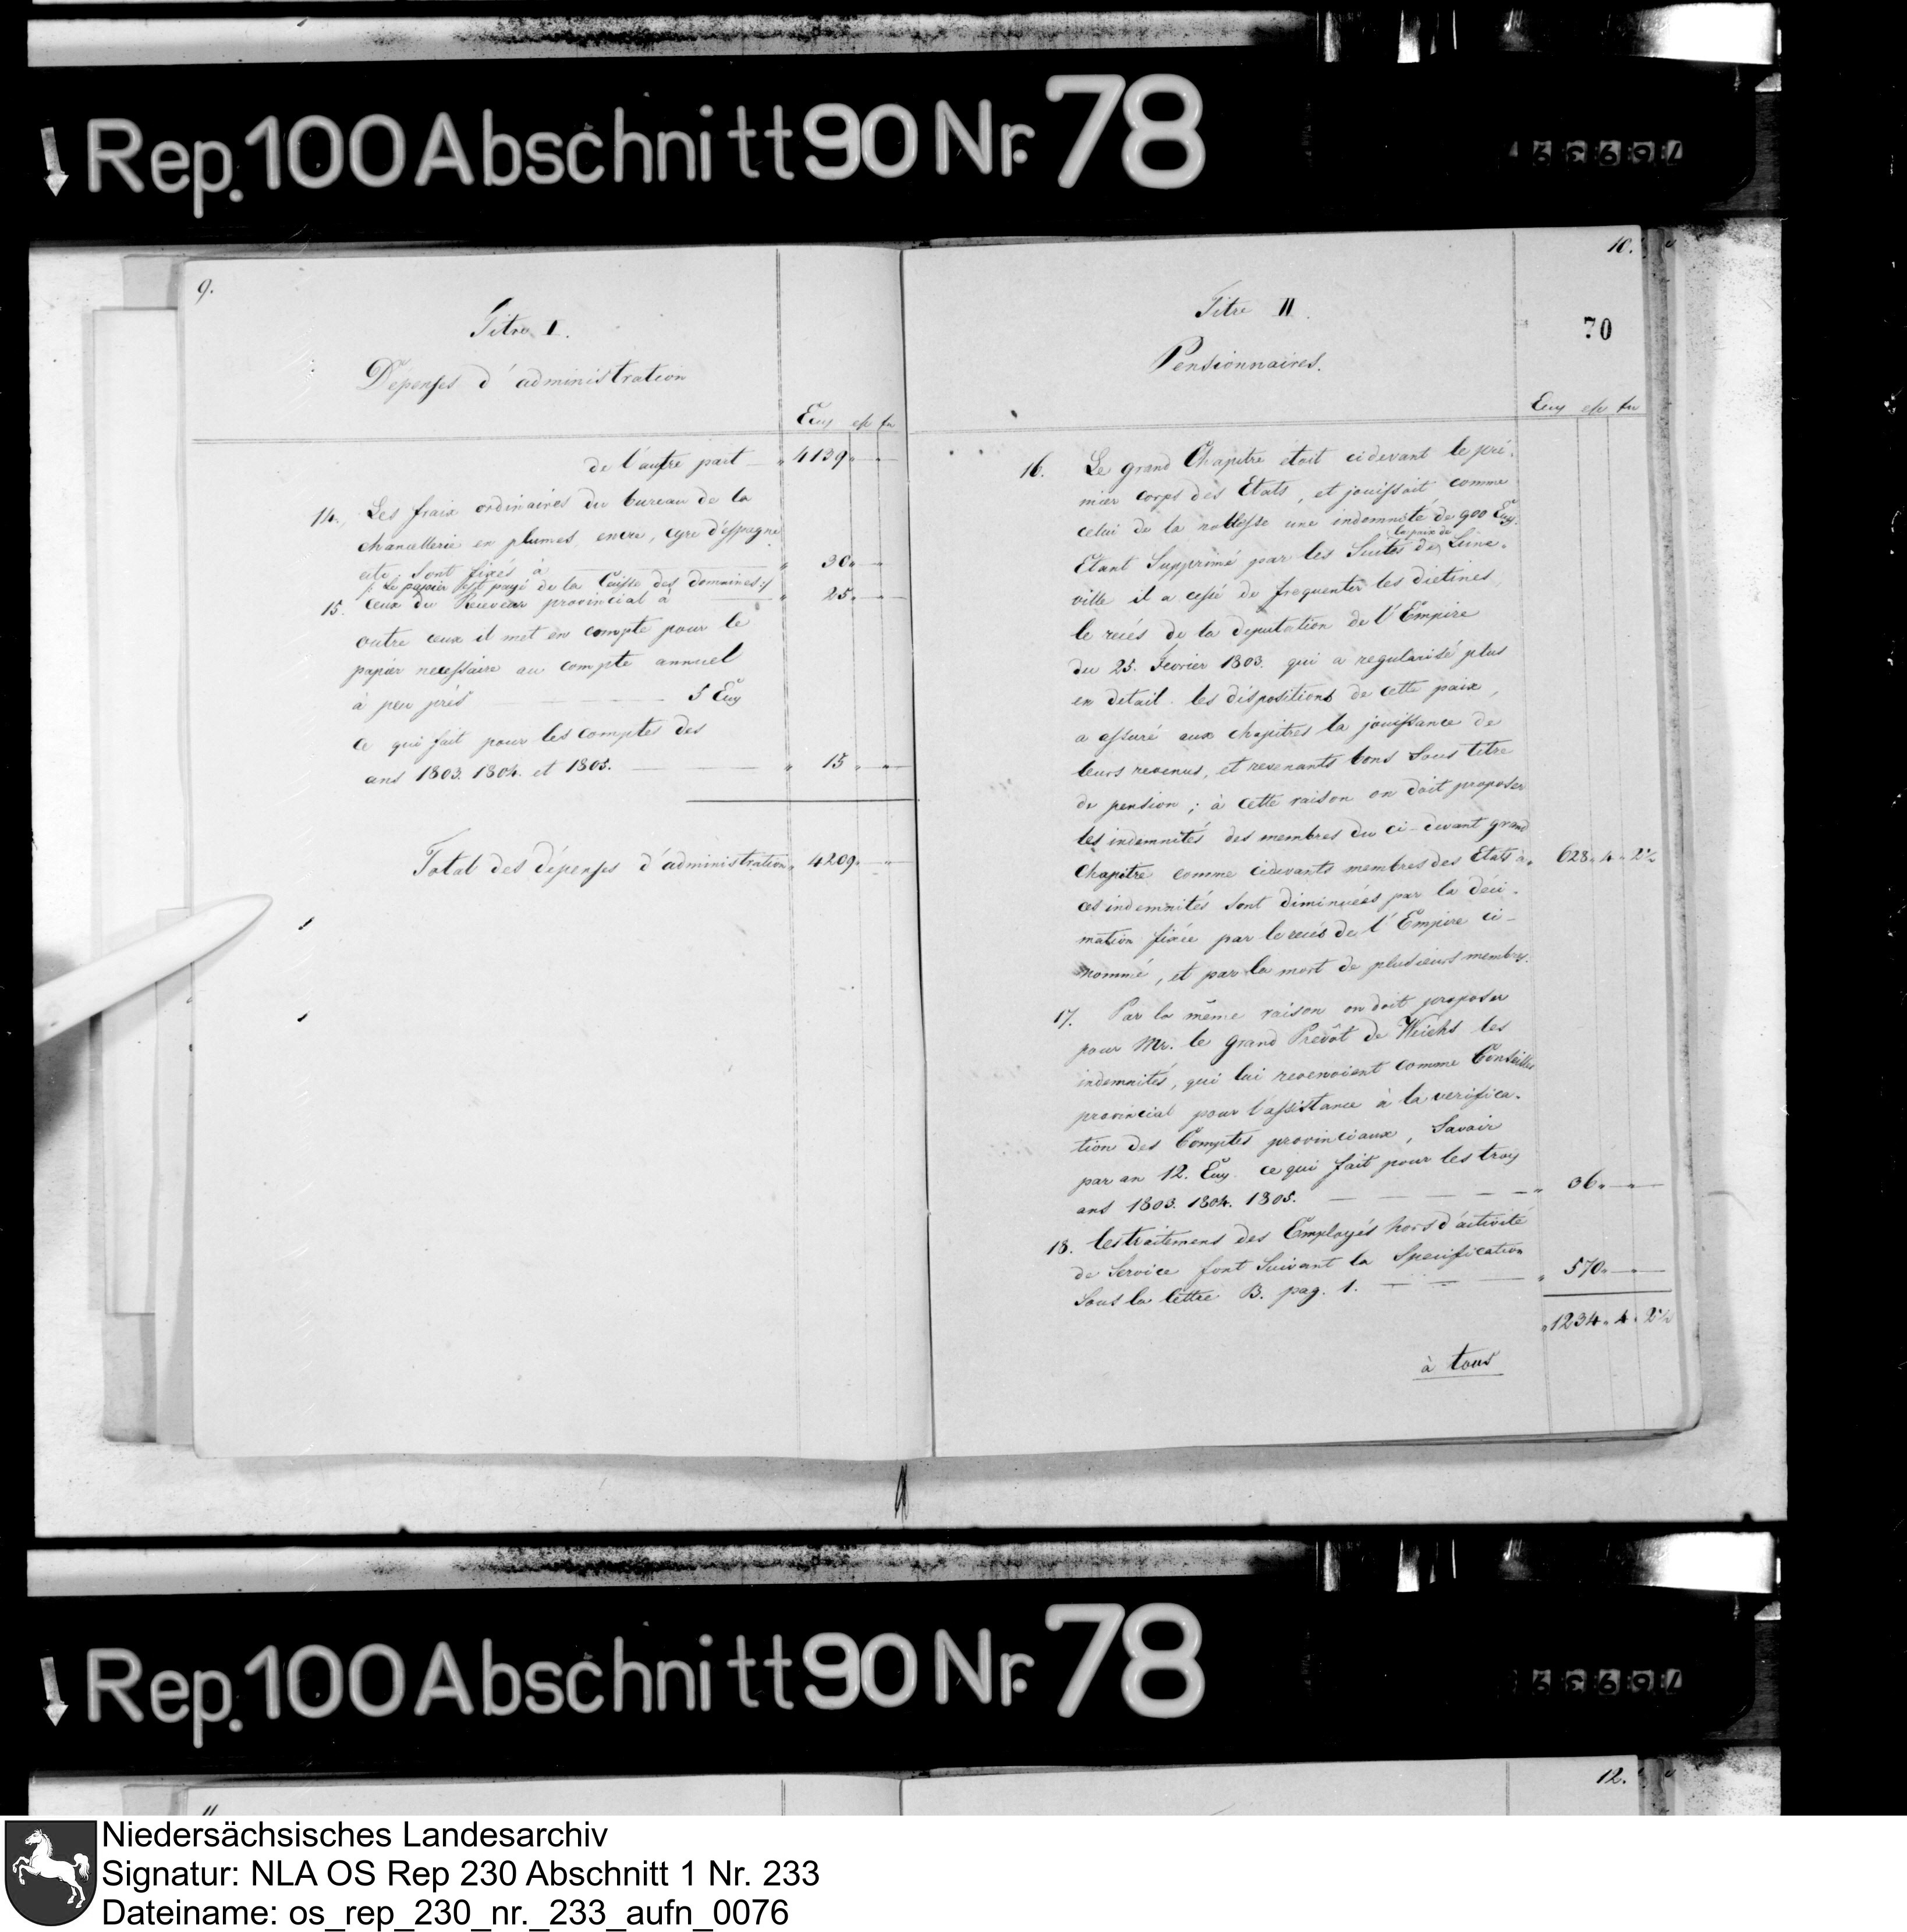 Rep. 100 Abschnitt 90 Nr. 78
9.
Titre I.
Dépenses d'administration
Ecus
de l'autre part 4139
14. Les fraix ordinaires du bureau de la
chancellerie en plumes, encre, cyre d'éspagne
etc, sont fixés à 30
/: Le papier est payé de la Caisse des domaines :/
15. ceux du Receveur provincial à 25
outre ceux il met en compte pour le
papier necessaire au compte annuel
à peu prés 5 Ecus
ce qui fait pour les comptes des
ans 1803. 1804. et 1805. 15
Total des dépenses d'administration 4209
10.
Titre II.
70
Pensionnaires.
Ecus
16. Le grand Chapitre etoit cidevant le pré-
mier corps des Etats, et jouissoit comme
celui de la noblesse une indemnité de 900 Ecus.
Etant Supprimé par les Suites de la paix de Lune-
ville il a cessé de frequenter les dietines,
le recés de la deputation de l'Empire
du 25. Fevrier 1803. qui a regularisé plus
en detail les dispositions de cette paix,
a assuré aux chapitres la jouissance de
leurs revenus, et revenants bons Sous titre
de pension; à cette raison on doit proposer
les indemnités des membres du ci-devant grand
Chapitre comme cidevants membres des Etats à 628 4 2½
ces indemnités Sont diminuées par la déci-
mation fixée par le recés de l'Empire ci-
nommé, et par la mort de plusieurs membres.
17. Par la même raison on doit proposer
pour Mr. le grand Prévôt de Weichs les
indemnités, qui lui revenoient comme Conseiller
provincial pour l'assistance à la verifica-
tion des Comptes provinciaux, Savoir
par an 12. Ecus. ce qui fait pour les trois
ans 1803. 1804. 1805. 36
18. les traitemens des Employés hors d'activité
de Service font Suivant la Specification
Sous la lettre B. pag. 1. 570
1234 4 2½
à tous
Rep. 100 Abschnitt 90 Nr. 78
11
12.
Niedersächsisches Landesarchiv
Signatur: NLA OS Rep 230 Abschnitt 1 Nr. 233
Dateiname: os_rep_230_nr._233_aufn_0076